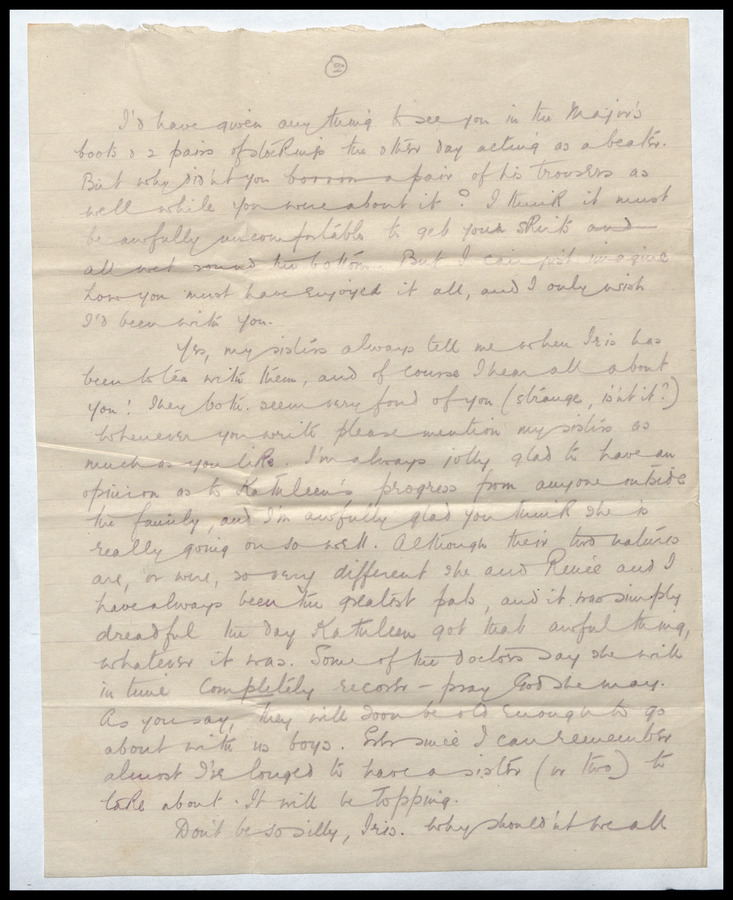 2
I'd have given anything to see you in the Major's
boots & 2 pairs of stockings the other day acting as a beater.
But why didn't you borrow a pair of his trousers as
well while you were about it? I think it must
be awfully uncomfortable to get your skirts and
all wet round the bottom. But I can just imagine
how you must have enjoyed it all, and I only wish
I'd been with you.
Yes, my sisters always tell me when Iris has
been to tea with them, and of course I hear all about
you! They both seem very fond of you (strange, isn't it?)
Whenever you write please mention my sisters as
much as you like. I'm always jolly glad to have an
opinion as to Kathleen's progress from anyone outside
the family, and I'm awfully glad you think she is
really going on so well. Although their two natures
are, or were, so very different she and Renée and I
have always been the greatest pals, and it was simply
dreadful the day Kathleen got that awful thing,
whatever it was. Some of the doctors say she will
in time completely recover – pray God she may.
As you say, they will soon be old enough to go
about with us boys. Ever since I can remember
almost I've longed to have a sister (or two) to
take about. It will be topping.
Don't be so silly, Iris. Why shouldn't we all